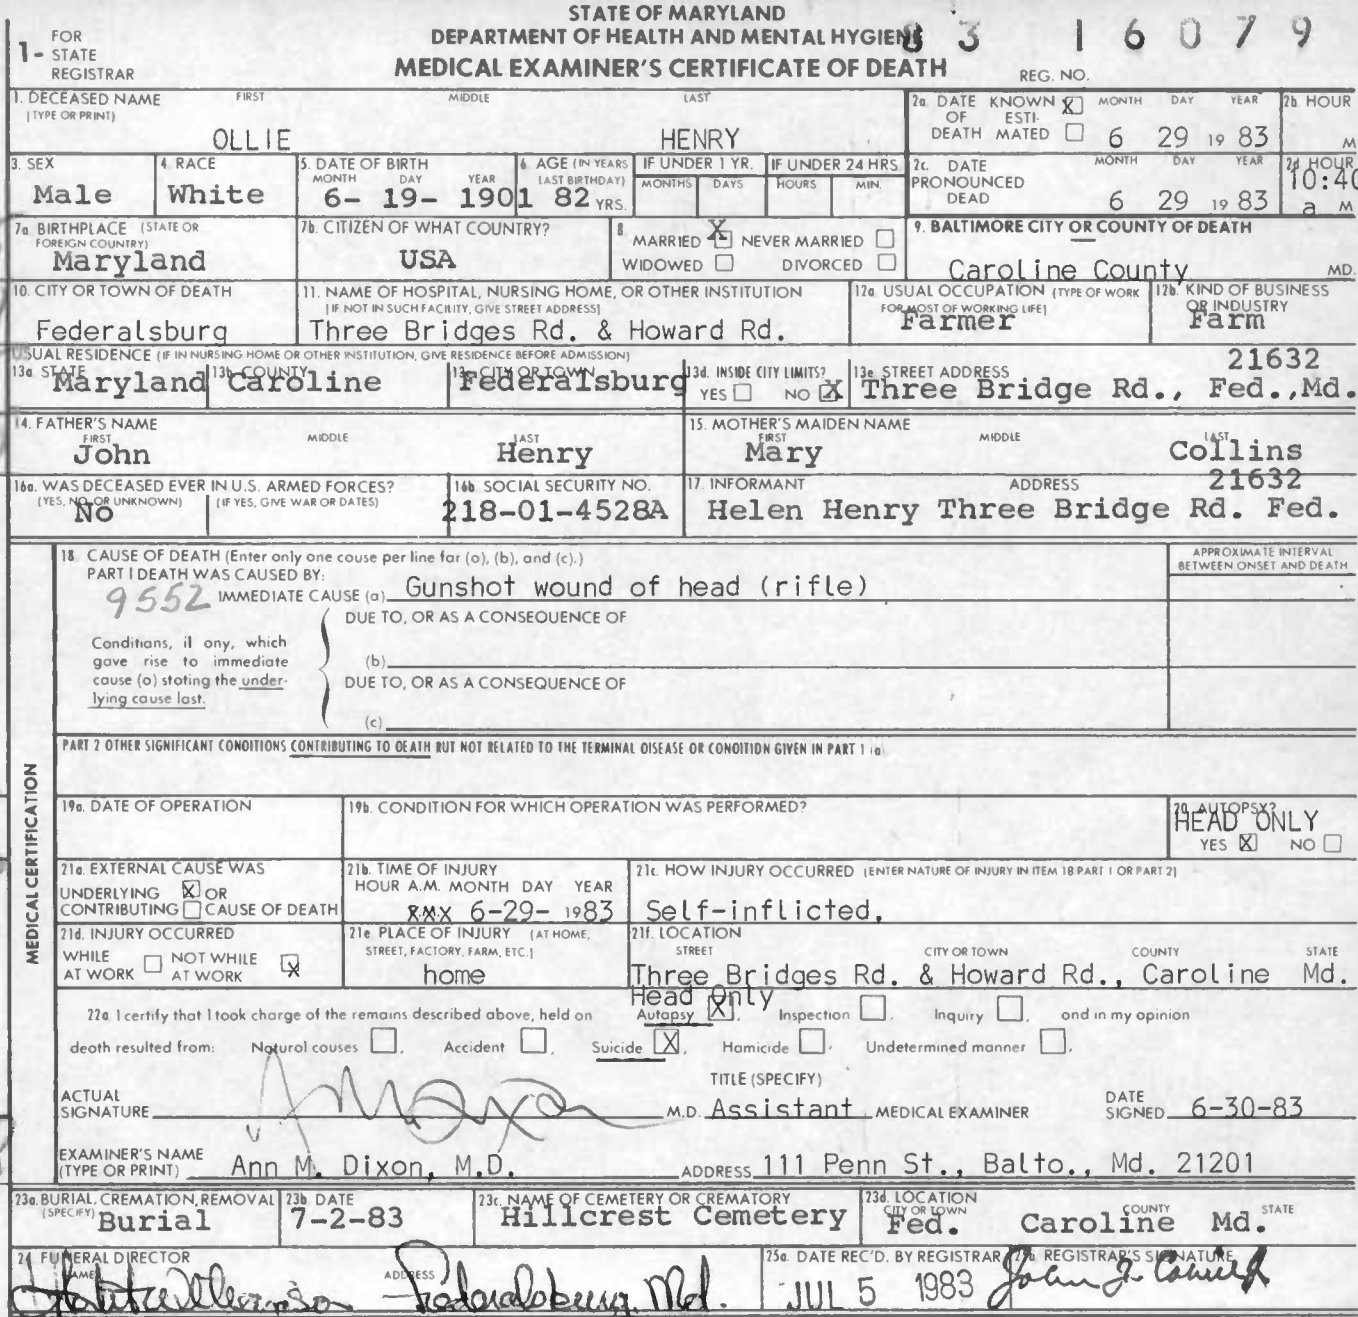 STATE OF MARYLAND
DEPARTMENT OF HEALTH AND MENTAL HYGIENE
MEDICAL EXAMINER'S CERTIFICATE OF DEATH
83 16079
REG. NO.
1- FOR STATE REGISTRAR
1. DECEASED NAME (TYPE OR PRINT) FIRST MIDDLE LAST
OLLIE HENRY
2a. DATE OF DEATH KNOWN X ESTIMATED MONTH DAY YEAR
6 29 19 83
2b. HOUR M
3. SEX
Male
4. RACE
White
5. DATE OF BIRTH MONTH DAY YEAR
6- 19- 1901
6. AGE (IN YEARS LAST BIRTHDAY)
82 YRS.
IF UNDER 1 YR. MONTHS DAYS
IF UNDER 24 HRS HOURS MIN.
2c. DATE PRONOUNCED DEAD MONTH DAY YEAR
6 29 19 83
2d. HOUR
10:40 a M
7a. BIRTHPLACE (STATE OR FOREIGN COUNTRY)
Maryland
7b. CITIZEN OF WHAT COUNTRY?
USA
8. MARRIED X NEVER MARRIED
WIDOWED DIVORCED
9. BALTIMORE CITY OR COUNTY OF DEATH
Caroline County MD.
10. CITY OR TOWN OF DEATH
Federalsburg
11. NAME OF HOSPITAL, NURSING HOME, OR OTHER INSTITUTION
(IF NOT IN SUCH FACILITY, GIVE STREET ADDRESS)
Three Bridges Rd. & Howard Rd.
12a. USUAL OCCUPATION (TYPE OF WORK FOR MOST OF WORKING LIFE)
Farmer
12b. KIND OF BUSINESS OR INDUSTRY
Farm
USUAL RESIDENCE (IF IN NURSING HOME OR OTHER INSTITUTION, GIVE RESIDENCE BEFORE ADMISSION)
13a. STATE
Maryland
13b. COUNTY
Caroline
13c. CITY OR TOWN
Federalsburg
13d. INSIDE CITY LIMITS?
YES NO X
13e. STREET ADDRESS 21632
Three Bridge Rd., Fed.,Md.
14. FATHER'S NAME FIRST MIDDLE LAST
John Henry
15. MOTHER'S MAIDEN NAME FIRST MIDDLE LAST
Mary Collins
16a. WAS DECEASED EVER IN U.S. ARMED FORCES?
(YES, NO, OR UNKNOWN) (IF YES, GIVE WAR OR DATES)
No
16b. SOCIAL SECURITY NO.
218-01-4528A
17. INFORMANT ADDRESS 21632
Helen Henry Three Bridge Rd. Fed.
MEDICAL CERTIFICATION
18. CAUSE OF DEATH (Enter only one couse per line far (o), (b), and (c).)
APPROXIMATE INTERVAL BETWEEN ONSET AND DEATH
PART I DEATH WAS CAUSED BY:
9552 IMMEDIATE CAUSE (a) Gunshot wound of head (rifle)
DUE TO, OR AS A CONSEQUENCE OF
Conditians, if ony, which gave rise to immediate cause (o) stoting the under-lying cause last.
(b)
DUE TO, OR AS A CONSEQUENCE OF
(c)
PART 2 OTHER SIGNIFICANT CONDITIONS CONTRIBUTING TO DEATH BUT NOT RELATED TO THE TERMINAL DISEASE OR CONDITION GIVEN IN PART 1 (a)
19a. DATE OF OPERATION
19b. CONDITION FOR WHICH OPERATION WAS PERFORMED?
20. AUTOPSY?
HEAD ONLY
YES X NO
21a. EXTERNAL CAUSE WAS
UNDERLYING X OR
CONTRIBUTING CAUSE OF DEATH
21b. TIME OF INJURY
HOUR A.M. MONTH DAY YEAR
6-29- 1983
21c. HOW INJURY OCCURRED (ENTER NATURE OF INJURY IN ITEM 18 PART I OR PART 2)
Self-inflicted.
21d. INJURY OCCURRED
WHILE AT WORK NOT WHILE AT WORK X
21e. PLACE OF INJURY (AT HOME, STREET, FACTORY, FARM, ETC.)
home
21f. LOCATION
STREET CITY OR TOWN COUNTY STATE
Three Bridges Rd. & Howard Rd., Caroline Md.
Head Only
22a. I certify that I took charge of the remains described above, held on Autopsy X, Inspection, Inquiry, ond in my opinion
death resulted from: Noturol couses, Accident, Suicide X, Hamicide, Undetermined manner.
TITLE (SPECIFY)
ACTUAL SIGNATURE A M Dixon M.D. Assistant MEDICAL EXAMINER DATE SIGNED 6-30-83
EXAMINER'S NAME (TYPE OR PRINT) Ann M. Dixon, M.D. ADDRESS 111 Penn St., Balto., Md. 21201
23a. BURIAL, CREMATION, REMOVAL (SPECIFY)
Burial
23b. DATE
7-2-83
23c. NAME OF CEMETERY OR CREMATORY
Hillcrest Cemetery
23d. LOCATION CITY OR TOWN COUNTY STATE
Fed. Caroline Md.
24. FUNERAL DIRECTOR
NAME ADDRESS
Federalsburg, Md.
25a. DATE REC'D. BY REGISTRAR
JUL 5 1983
25b. REGISTRAR'S SIGNATURE
John J.